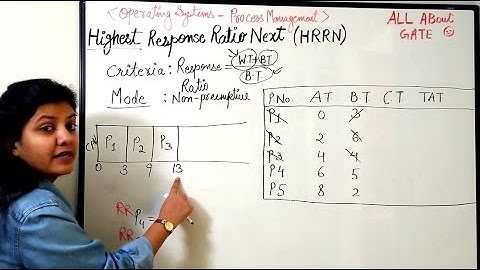 < Operating Systems - Process Management >
Highest Response Ratio Next (HRRN)
ALL About
GATE ☺
Criteria: Response Ratio = WT+BT
B.T
Mode : Non-preemptive
P1 P2 P3
0 3 9 13
RR P4 =
RR
P.No. A.T B.T C.T TAT
P1 0 3
P2 2 6
P3 4 4
P4 6 5
P5 8 2